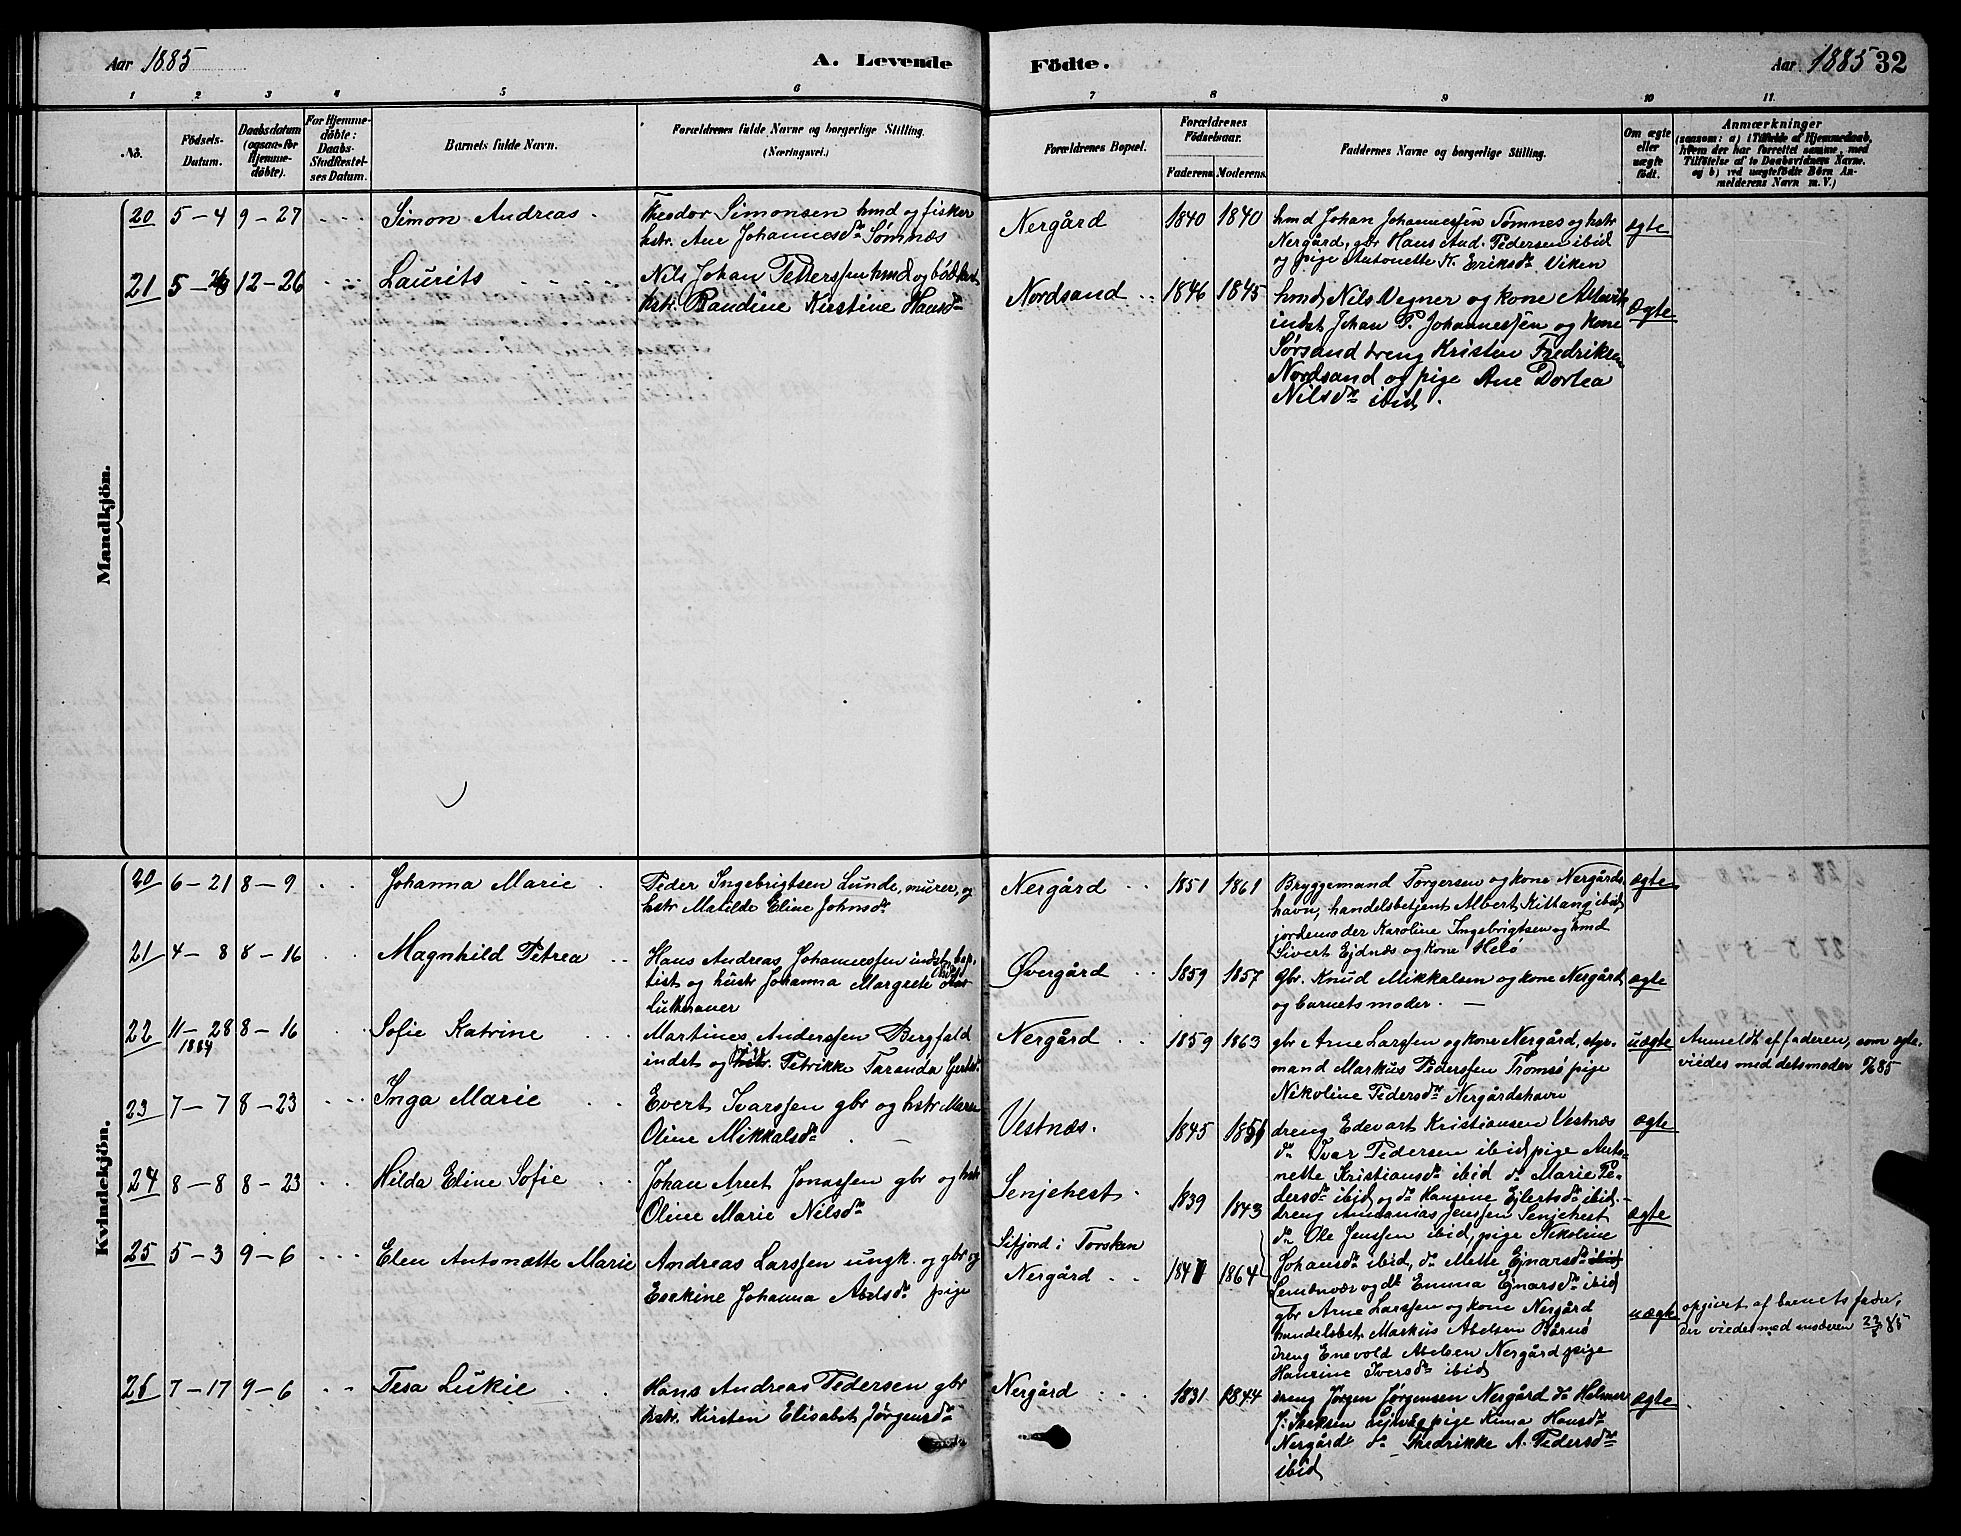 Aar 1885
A. Levende
Födte.
Aar 1885 32
1 2 3 4 5 6 7 8 9 10 11.
No.
Födsels-
Datum.
Daabsdatum
(ogsaa for
Hjemme-
döbte).
For Hjemme-
döbte:
Daabs-
Stadfæstel-
ses Datum.
Barnets fulde Navn.
Forældrenes fulde Navne og borgerlige Stilling.
(Næringsvei.)
Forældrenes Bopæl.
Forældrenes
Födselsaar.
Faderens. Moderens.
Faddernes Navne og borgerlige Stilling.
Om ægte
eller
uægte
födt.
Anmærkninger
(saasom: a) i Tilfælde af Hjemmedaab,
hvem der har forrettet samme, med
Tilföielse af to Daabsvidners Navne,
og b) ved uægtefödte Börn An-
melderens Navn m. V.)
Mandkjön.
20 5-4 9-27
Simon Andreas
Theodor Simonsen hmd og fisker
hstr. Ane Johannesdr Sømnæs
Nergård
1840 1840
hmd Johan Johannessen Tømnes og hstr
Nergård, gbr Hans And. Pedersen ibid
og pige Antonette K. Eriksdr Viken
ægte
21 5-26 12-26
Laurits
Nils Johan Pederssen hmd og
hstr. Randine Kirstine Hansdr
Nordsand
1846 1845
hmd Nils Vegner og kone
indst Johan P. Johannessen og kone
Sørsand dreng Kristen Fredriksen
Nordsand og pige Ane Dortea
Nilsdr ibid.
Ægte
Kvindekjön.
20 6-21 8-9
Johanna Marie
Peder Ingebrigtsen Lunde, murer, og
hstr Matilde Eline Johnsdr
Nergård
1851 1861
Bryggemand Torgersen og kone Nergårds
havn, handelsbetjent Albert Kittang ibid
jordemoder Karoline Ingebrigtsen og hmd
Sivert Ejdnæs og kone Helø
ægte
21 4-8 8-16
Magnhild Petrea
Hans Andreas Johannessen indst bap-
tist og hustr Johanna Margrete
Luthraner
Øvergård
1859 1857
Gbr. Knud Mikkalsen og kone Nergård
og barnets moder.
ægte
22 11-28 8-16
1884
Sofie Katrine
Martines Anderssen Bergfald
indst og Petrikke Taranda
Nergård
1859 1863
gbr Arne Larssen og kone Nergård, styr-
mand Markus Pederssen Tromsø pige
Nikoline Pedersdr Nergårdshavn
uægte
Anmeldt af faderen, som ægte-
viedes med dets moder 85
23 7-7 8-23
Inga Marie
Evert Ivarssen gbr og hstr Maren
Oline Mikkalsdr
Vestnæs.
1845
dreng Edevart Kristiansen Vestnæs
do Ivar Pedersen ibid, pige Anto-
nette Kristiansdr ibid do Marie Pe-
dersdr ibid og do Hansine Ejlertsdr ibid.
ægte
24 8-8 8-23
Hilda Eline Sofie
Johan Areet Jonassen gbr og hstr
Oline Marie Nilsdr
Senjehest
1839 1843
dreng Annanias Jenssen Senjehest
do Ole Jenssen ibid, pige Nikoline
Johansdr ibid, do Mette Ejnarsdr ibid
Lemmvær og do Emma Ejnarsdr ibid
ægte
25 5-3 9-6
Elen Antonætte Marie
Andreas Larssen ungk. og gbr og
Erekine Johanna Abelsdr pige
Sifjord i Torsken
Nergård
1864
gbr Arne Larssen og kone Nergård
handelsbet. Markus Abelsen
dreng Enevold Abelsen Nergård pige
Hanrine Iversdr ibid
uægte
opgivet af barnets fader,
der viedes med moderen 23 85
26 7-17 9-6
Tesa Lukie
Hans Andreas Pedersen gbr
hstr. Kirsten Elisabet Jørgensdr
Nergård
1831 1844
dreng Jørgen Jørgensen Nergård do Helmer
pige Kima Hansdr
Nergård do Fredrikke A. Pedersdr
ibid
ægte